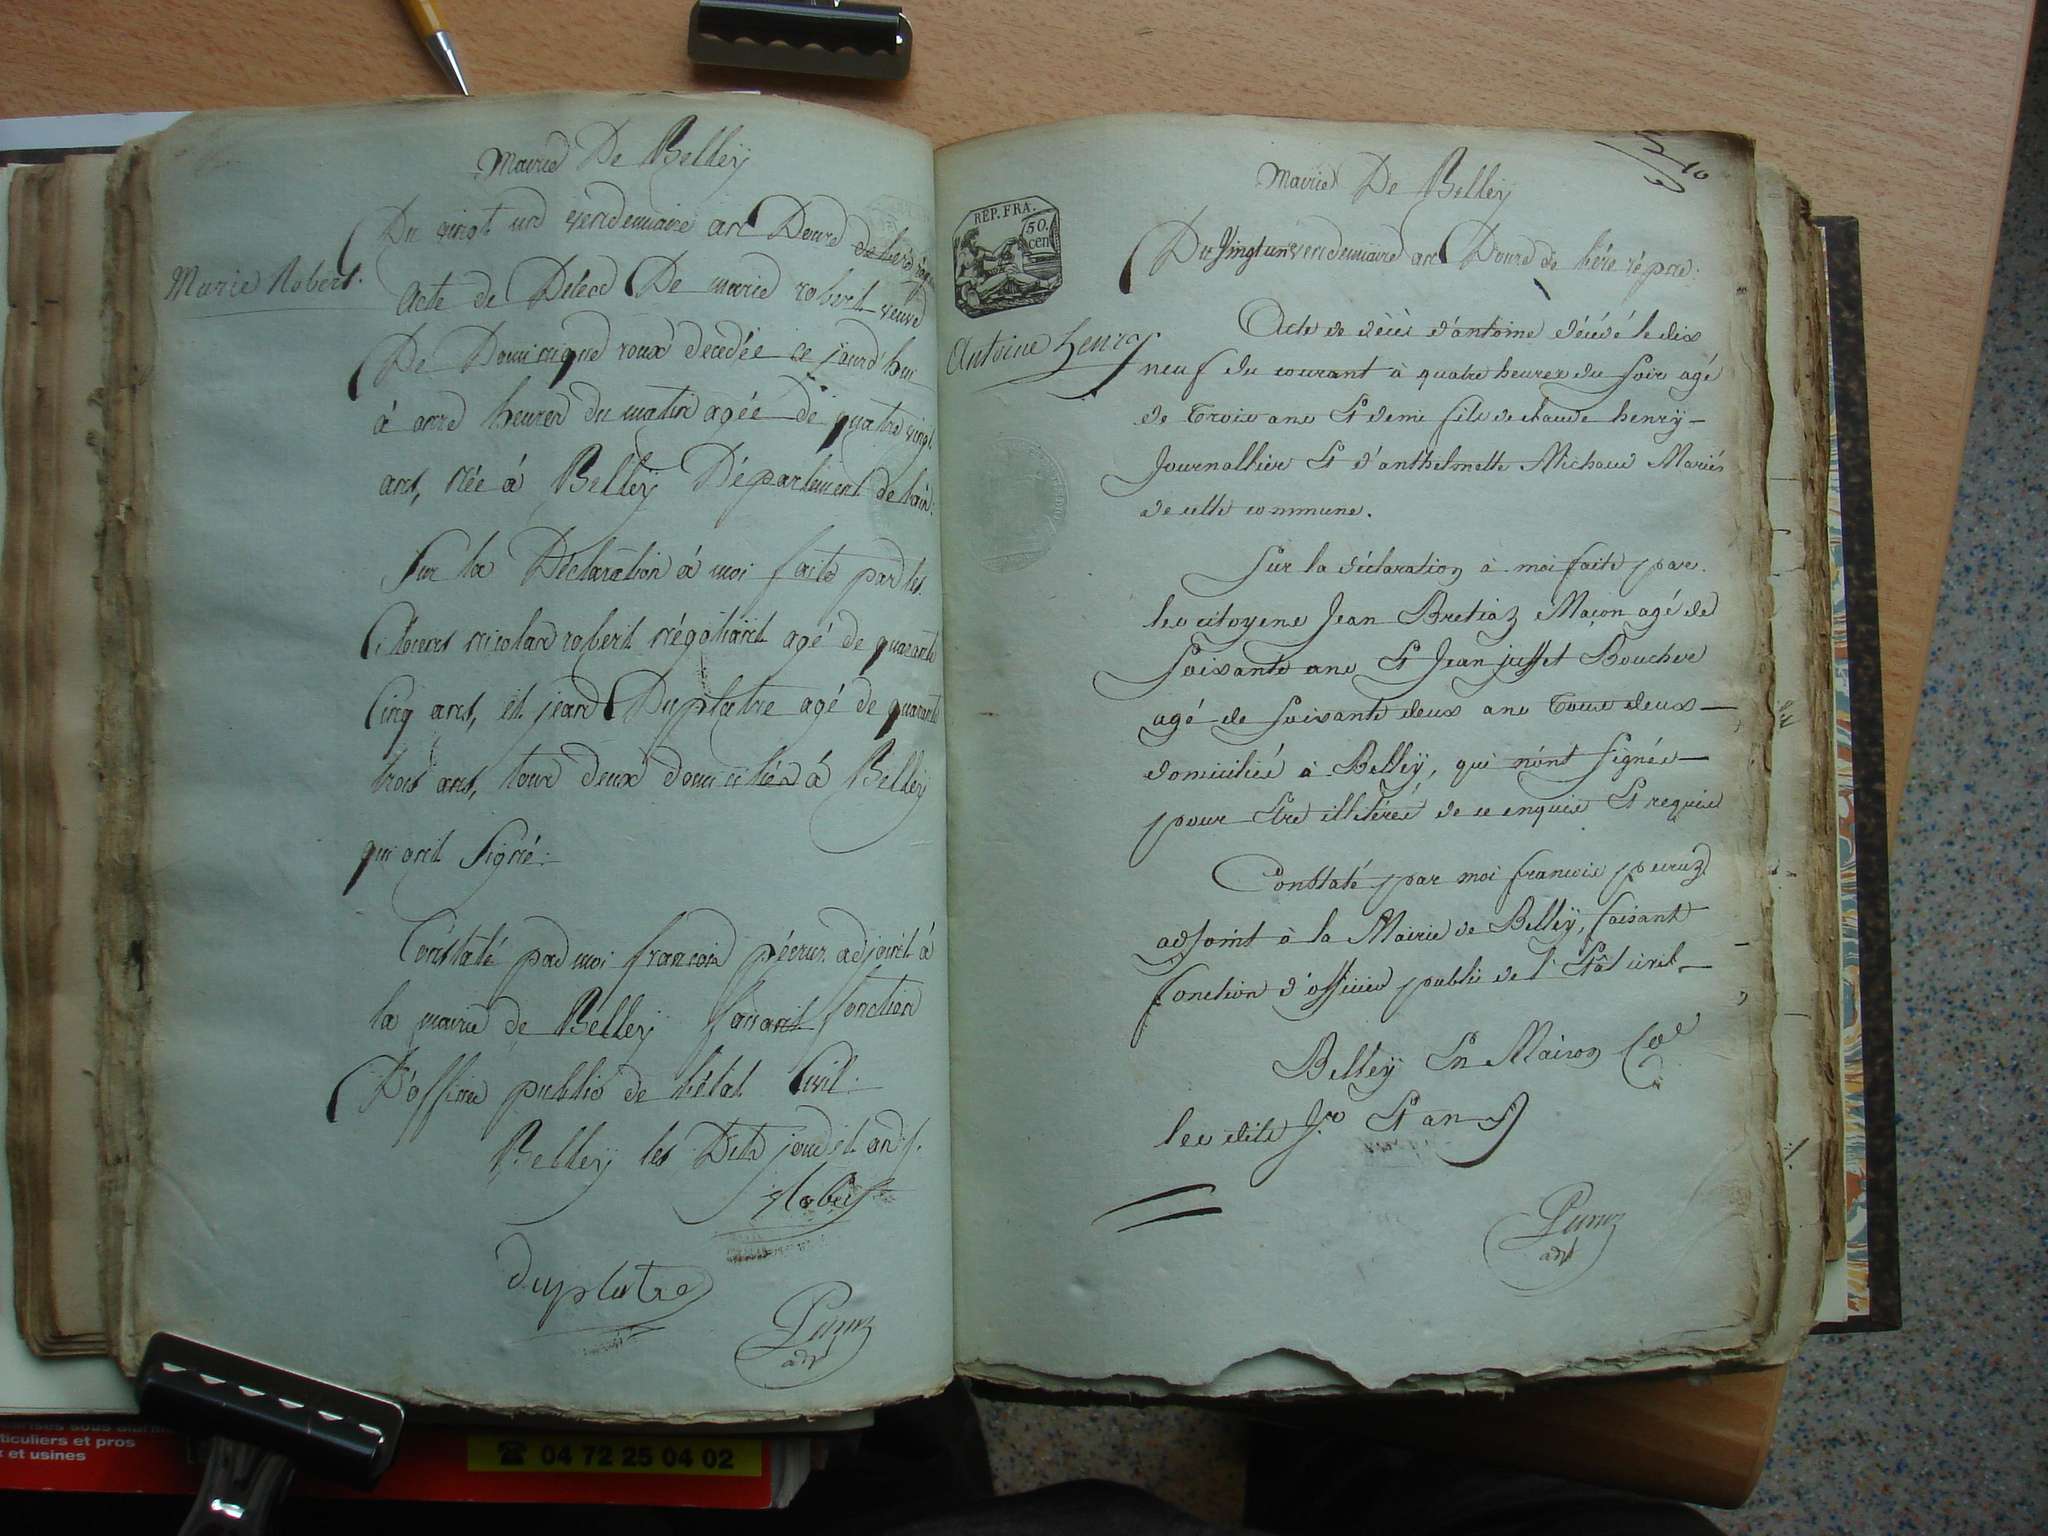 Mairie De Belleÿ
Du vingt un vendemiaire an Douze de l'ere rép
Marie Robert.
Acte de Décès De marie robert veuve
De Dominique roux decedée ce jourd'hui
á onze heures du matin agée de quatre vingt
ans, née á Belleÿ Département de lain.
Sur la Déclaration á moi faite par les
Citoiens nicolas robert négotiant agé de quarante
Cinq ans, et jean Duplatre agé de quarante
trois ans, tous deux domiciliés á Belleÿ
qui ont Signé.
Constaté par moi francois pécruz adjoint á
la mairie de Belleÿ faisant fonction
D'officier public de l'état Civil.
Belleÿ les Dits jour et an /.
Robert
duplatre
adjt
10
Mairie De Belleÿ
REP. FRA.
50.
cen
Du Vingt un vendemiaire an Douze de l'ére répne.
Antoine henry
Acte de décès d'antoine décédé le dix
neuf du courant à quatre heures du Soir agé
de Trois ans Et demi fils de claude henrÿ
Journallier Et d'anthelmette Michaud Mariés
de cette commune.
Sur la déclaration à moi faite par
les citoyens Jean Bretiaz Maçon agé de
Soixante ans Et Jean juffet Boucher
agé de Soixante deux ans Tous deux
domiciliés à Belleÿ, qui n'ont Signés
pour Etre illitérés de ce enquis Et requis
Constaté par moi francois pecruz
adjoint à la Mairie de Belleÿ, faisant
fonction d'officier public de l'Etât civil
Belleÿ En Maison Coe
les dits Jr Et an
adjt
ticuliers et pros
x et usines
☎ 04 72 25 04 02